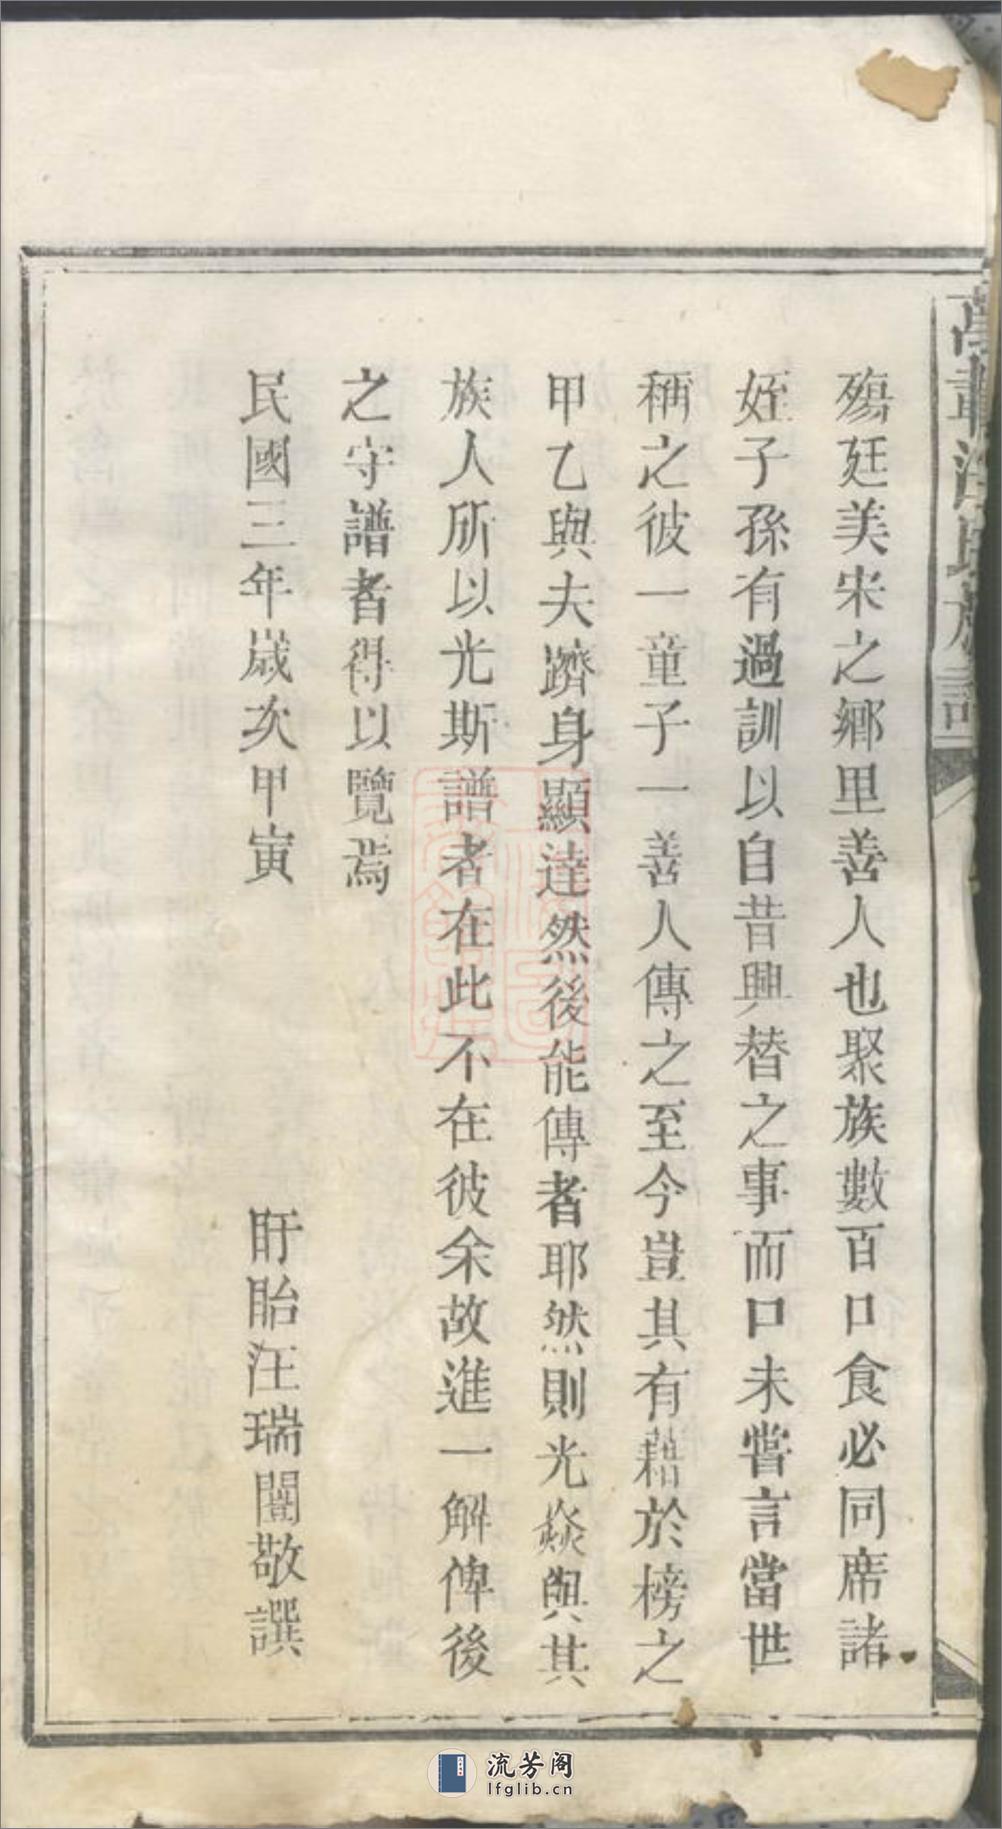 殤廷美宋之鄉里善人也聚族數百口食必同席諸
姪子孫有過訓以自昔興替之事而口未嘗言當世
稱之彼一童子一善人傳之至今豈其有藉於榜之
甲乙與夫躋身顯達然後能傳者耶然則光燄與其
族人所以光斯譜者在此不在彼余故進一解俾後
之守譜者得以覽焉
民國三年歲次甲寅
盱眙汪瑞闓敬譔
流芳阁
lfglib.cn